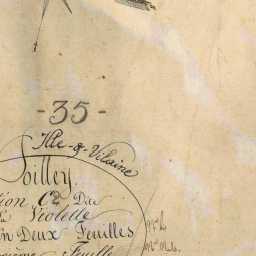 -35-
Ille-&-Vilaine
Poilley.
tion C2 Dite
la Violette
n Deux Feuilles
Feuille